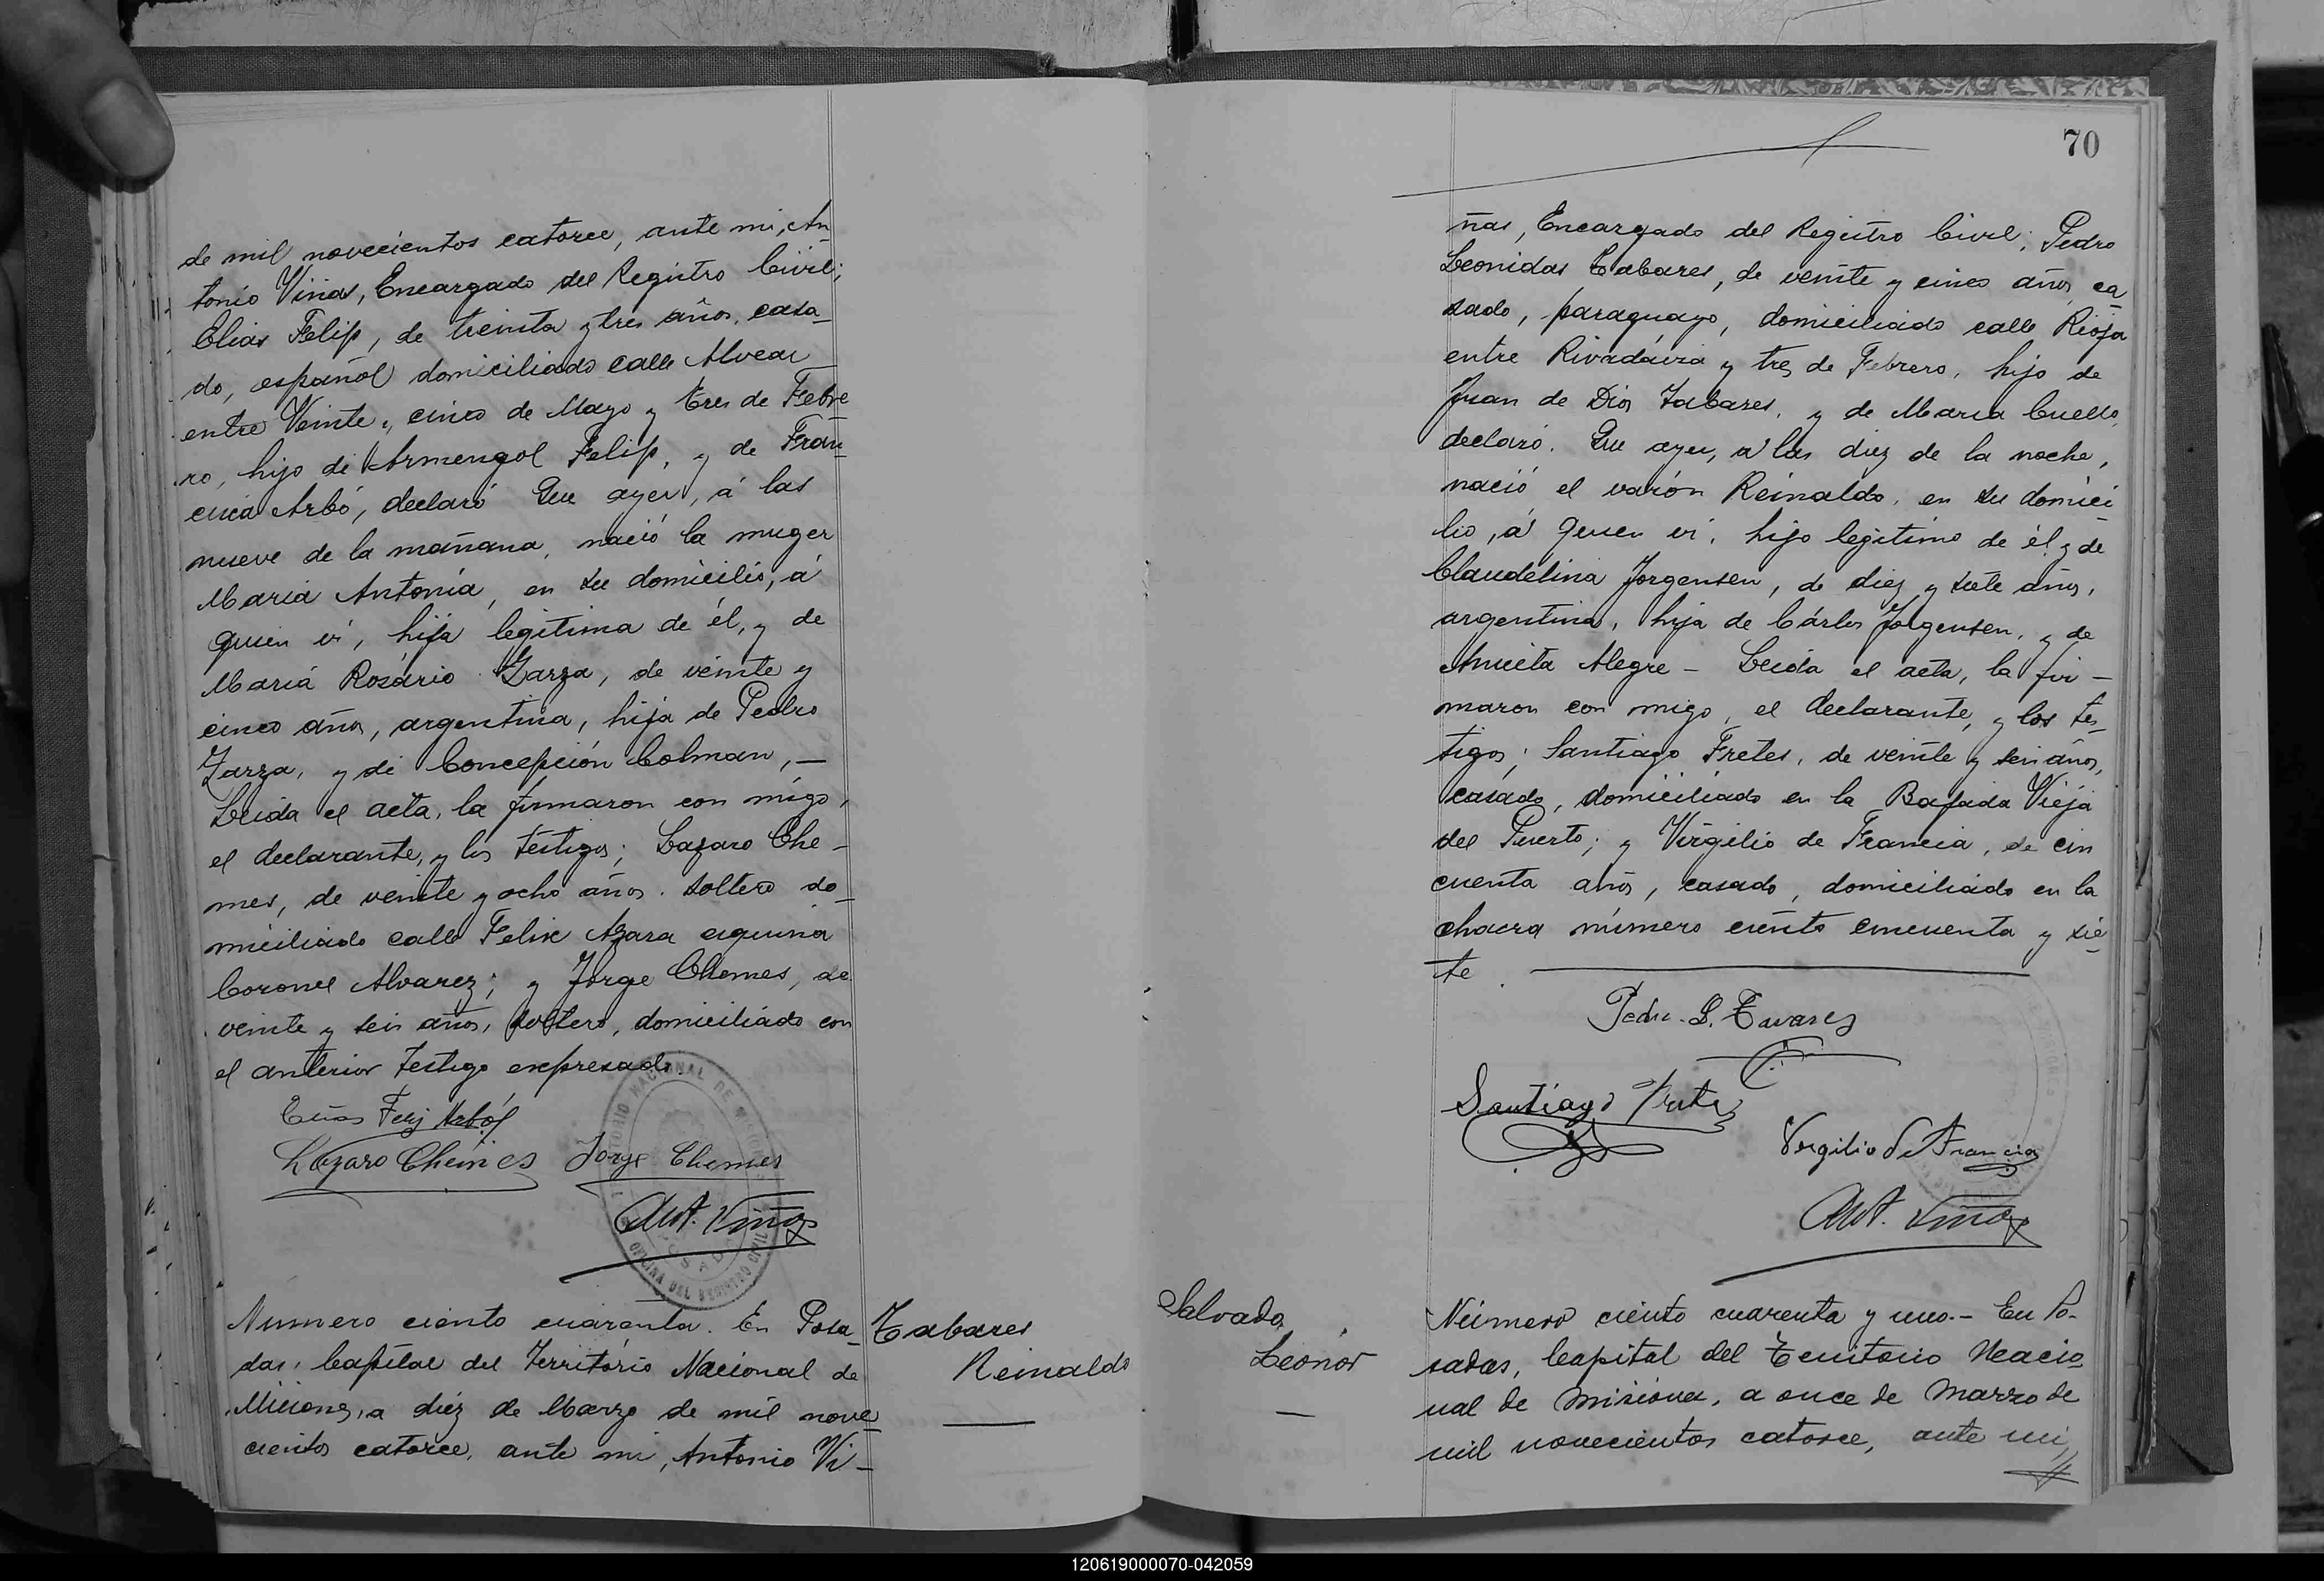 de mil novecientos catorce, ante mi, An
tonio Viñas, Encargado del Registro Civil;
Elias Felip, de treinta y tres años, casa_
do, español domiciliado calle Alvear
entre Veinte y cinco de Mayo y tres de Febre
ro, hijo de Armengol Felip, y de Fran
cisca Arbó, declaró Que ayer, á las
nueve de la mañana, nació la muger
Maria Antonia, en su domicilio, á
quien vi, hija legitima de él, y de
Maria Rosario Zarza, de veinte y
cinco años, argentina, hija de Pedro
Zarza, y de Concepción Colman, —
Leida el acta, la firmaron con migo,
el declarante, y los testigos; Lazaro Che -
mes, de veinte y ocho años. soltero do_
miciliado calle Felix Azara esquina
Coronel Alvarez; y Jorge Chemes, de
veinte y seis años, soltero, domiciliado con
el anterior testigo expresado.
TERRITORIO NACIONAL DE MISIONES
OFICINA DEL REGISTRO CIVIL
POSADAS
Elias Felip Arbó
Lázaro Chemes Jorge Chemes
Ant. Viñas
Numero ciento cuarenta. En Posa_
das, Capital del Territorio Nacional de
Misiones, a diez de Marzo de mil nove_
cientos catorce, ante mi, Antonio Vi_
Tabares
Reinaldo
70
ñas, Encargado del Registro Civil; Pedro
Leonidas Tabares, de veinte y cinco años ca_
sado, paraguayo, domiciliado calle Rioja
entre Rivadavia y tres de Febrero, hijo de
Juan de Dios Tabares, y de Maria Cuello,
declaró. Que ayer, a las diez de la noche,
nació el varón Reinaldo, en su domici_
lio, á quien vi, hijo legitimo de él y de
Claudelina Jorgensen, de diez y siete años,
argentina, hija de Cárlos Jorgensen, y de
Anicita Alegre - Leida el acta, la fir -
maron con migo, el declarante, y los tes_
tigos; Santiago Fretes, de veinte y seis años,
casado, domiciliado en la Bajada Vieja
del Puerto; y Virgilio de Francia, de cin
cuenta años, casado, domiciliado en la
chacra número ciento cincuenta y sie_
te.
Pedro L. Tavares
Santiago Fretes
Virgilio de Francia
Ant. Viñas
Salvado,
Leonor
Número ciento cuarenta y uno.- En Po-
sadas, Capital del Territorio Nacio_
nal de Misiones, a once de Marzo de
mil novecientos catorce, ante mi,
120619000070-042059